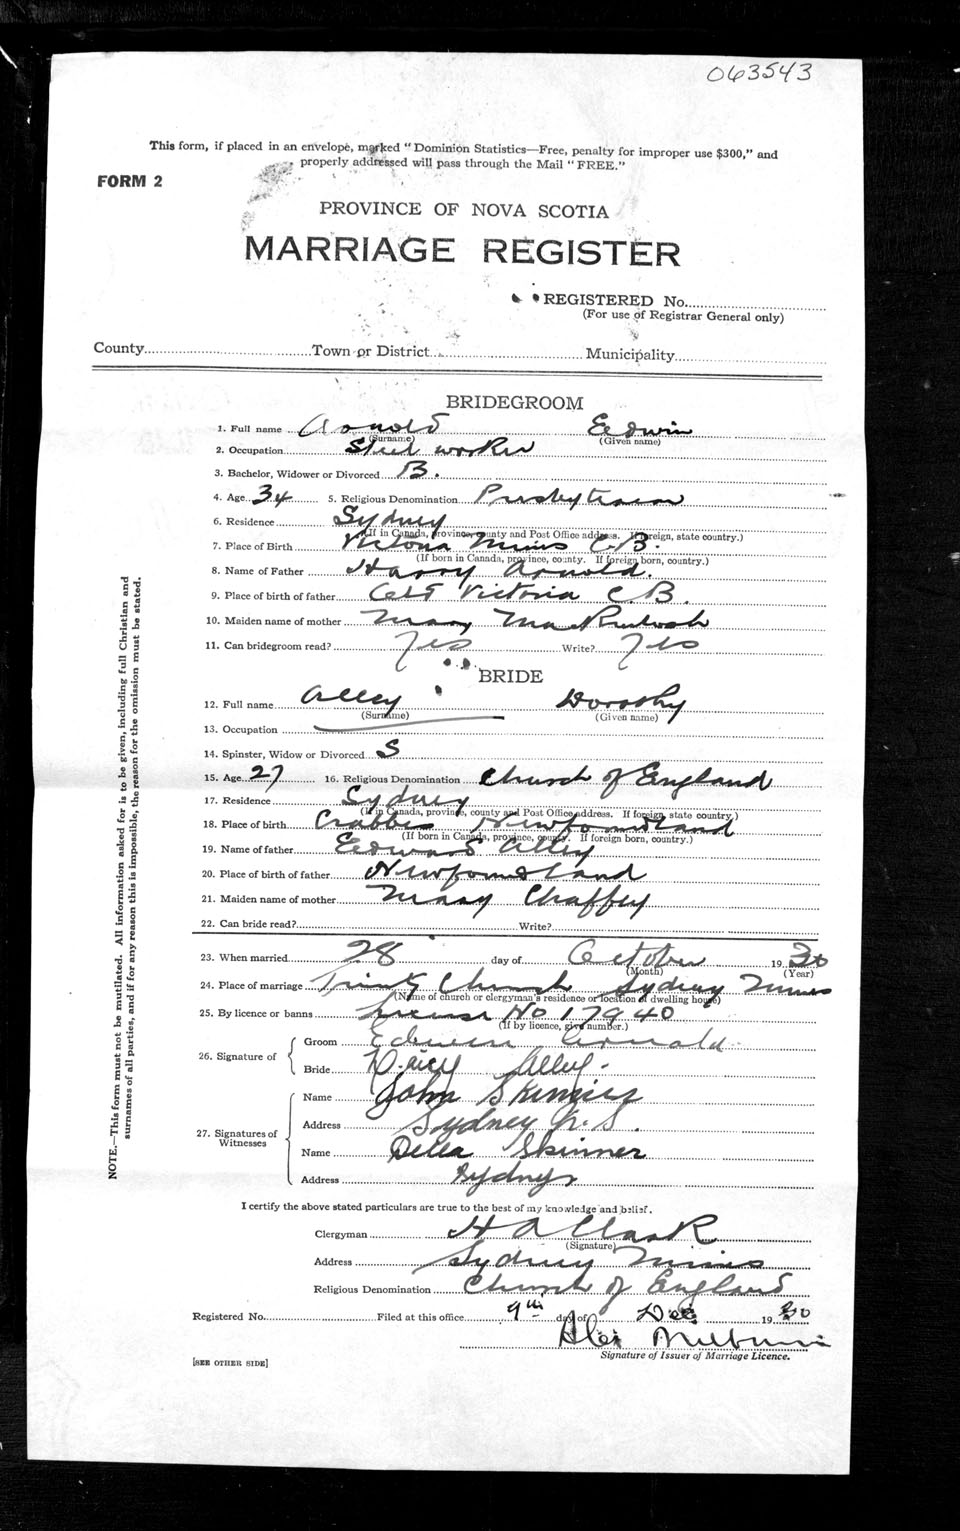 063543
This form, if placed in an envelope, marked "Dominion Statistics—Free, penalty for improper use $300," and
properly addressed will pass through the Mail "FREE."
FORM 2
PROVINCE OF NOVA SCOTIA
MARRIAGE REGISTER
REGISTERED No.
(For use of Registrar General only)
County Town or District Municipality
BRIDEGROOM
1. Full name Arnold Edwin
(Surname) (Given name)
2. Occupation Steel worker
3. Bachelor, Widower or Divorced B.
4. Age 34 5. Religious Denomination Presbyterian
6. Residence Sydney
(If in Canada, province, county and Post Office address. If foreign, state country.)
7. Place of Birth Victoria Mines C B.
(If born in Canada, province, county. If foreign born, country.)
8. Name of Father Harry Arnold.
9. Place of birth of father Victoria C B.
10. Maiden name of mother Mary
11. Can bridegroom read? Yes Write? Yes
BRIDE
12. Full name Alley Dorothy
(Surname) (Given name)
13. Occupation
14. Spinster, Widow or Divorced S
15. Age 27 16. Religious Denomination Church of England
17. Residence Sydney
(If in Canada, province, county and Post Office address. If foreign, state country.)
18. Place of birth Crabbes Newfoundland
(If born in Canada, province, county. If foreign born, country.)
19. Name of father Edward Alley
20. Place of birth of father Newfoundland
21. Maiden name of mother Mary Chaffey
22. Can bride read? Write?
23. When married 28 day of October 1930
(Month) (Year)
24. Place of marriage Trinity Church Sydney Mines
(Name of church or clergyman's residence or location of dwelling house)
25. By licence or banns License No 17940
(If by licence, give number.)
26. Signature of Groom Edwin Arnold
Bride Alley.
27. Signatures of Witnesses Name John Skinner
Address Sydney N.S.
Name Delia Skinner
Address Sydney
I certify the above stated particulars are true to the best of my knowledge and belief.
Clergyman H A Clark
(Signature)
Address Sydney Mines
Religious Denomination Church of England
Registered No. Filed at this office 9th day of Dec 1930
Signature of Issuer of Marriage Licence.
[SEE OTHER SIDE]
NOTE.—This form must not be mutilated. All information asked for is to be given, including full Christian and
surnames of all parties, and if for any reason this is impossible, the reason for the omission must be stated.